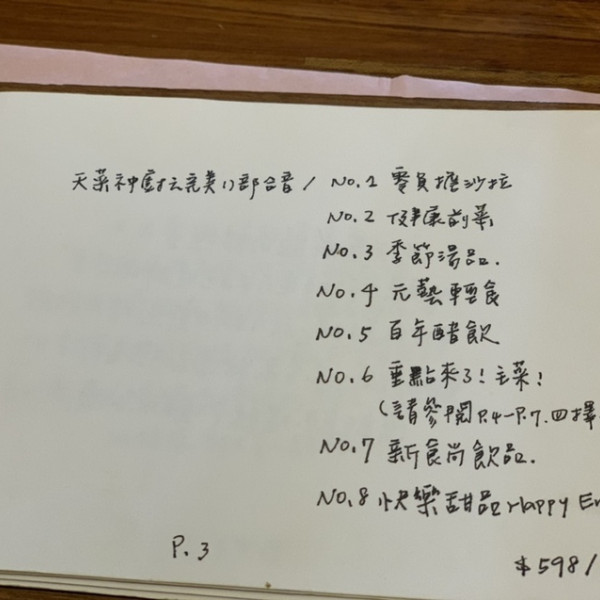 天菜神廚松完美八部合音 / No.1 零負擔沙拉
No.2 健康前菜
No.3 季節湯品.
No.4 元藝輕食
No.5 百年醋飲
No.6 重點來了! 主菜!
(請參閱 P.4-P.7. 四擇
No.7 新食尚飲品.
No.8 快樂甜品 Happy En
P.3
$598/